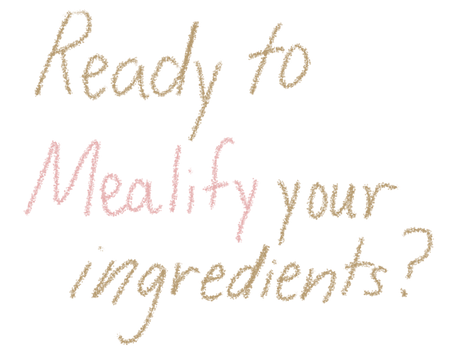 Ready to
Mealify your
ingredients?